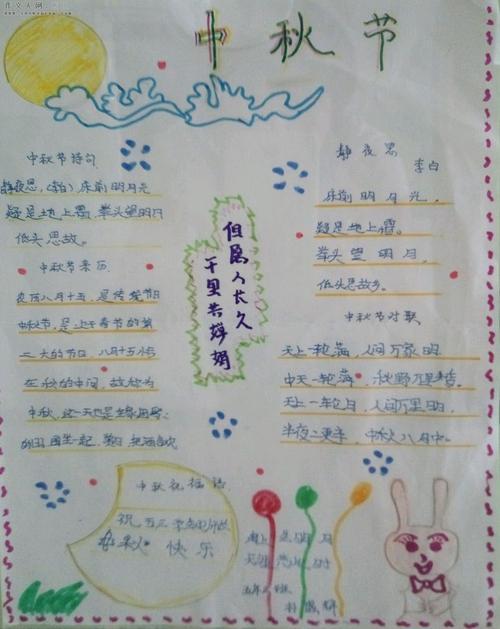 中秋节
中秋节诗句
静夜思,(李白)床前明月光
疑是地上霜,举头望明月
低头思故。
中秋节来历
农历八月十五,是传统节日
中秋节,是上于春节的第
二大的节日,八月十五恰
在秋的中间,故称为
中秋,这一天也是
但愿人长久
千里共婵娟
静夜思
李白
床前明月光,
疑是地上霜。
举头望明月,
低头思故乡。
中秋节对联
天上一轮满,人间万家明
中天一轮满,秋野万里香。
天上一轮月,人间万里明,
半夜二更半,中秋八月中。
中秋祝福语
祝五三
中秋快乐